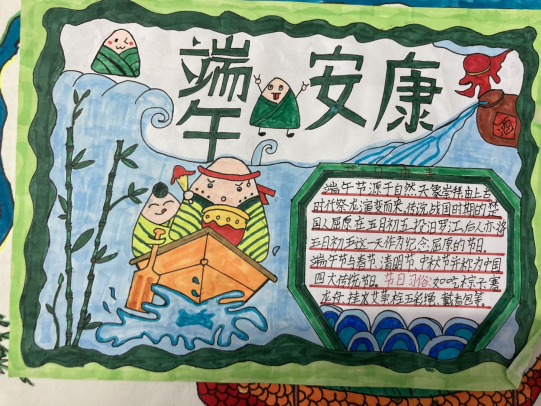 端午安康
酒
端午节源于自然天象崇拜,由上古
时代祭龙演变而来,传说战国时期的楚
国人屈原在五月初五投汨罗江,后人亦将
五月初五这一天作为纪念屈原的节日,
端午节与春节、清明节、中秋节并称为中国
四大传统节日。节日习俗:如吃粽子、赛
龙舟、挂水艾草、栓五彩绳、戴香包等。